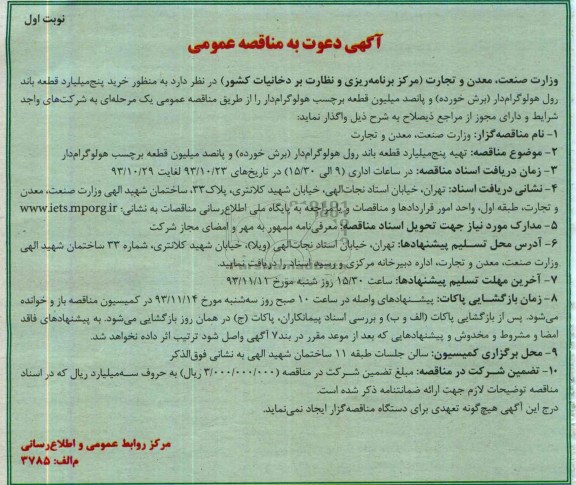 نوبت اول
آگهی دعوت به مناقصه عمومی
وزارت صنعت، معدن و تجارت (مرکز برنامه‌ریزی و نظارت بر دخانیات کشور) در نظر دارد به منظور خرید پنج‌میلیارد قطعه باند
رول هولوگرام‌دار (برش خورده) و پانصد میلیون قطعه برچسب هولوگرام‌دار را از طریق مناقصه عمومی یک مرحله‌ای به شرکت‌های واجد
شرایط و دارای مجوز از مراجع ذیصلاح به شرح ذیل واگذار نماید:
۱- نام مناقصه‌گزار: وزارت صنعت، معدن و تجارت
۲- موضوع مناقصه: تهیه پنج‌میلیارد قطعه باند رول هولوگرام‌دار (برش خورده) و پانصد میلیون قطعه برچسب هولوگرام‌دار
۳- زمان دریافت اسناد: در ساعات اداری (۹ الی ۱۵/۳۰) در تاریخ‌های ۹۳/۱۰/۲۳ لغایت ۹۳/۱۰/۲۹
۴- نشانی دریافت اسناد: تهران، خیابان استاد نجات‌الهی، خیابان شهید کلانتری، پلاک۳۳، ساختمان شهید الهی وزارت صنعت، معدن
و تجارت، طبقه اول، واحد امور قراردادها و مناقصات و یا مراجعه به پایگاه ملی اطلاع‌رسانی مناقصات به نشانی: www.iets.mporg.ir
۵- مدارک مورد نیاز جهت تحویل اسناد مناقصه: معرفی‌نامه ممهور به مهر و امضای مجاز شرکت
۶- آدرس محل تسلیم پیشنهادها: تهران، خیابان استاد نجات‌الهی (ویلا)، خیابان شهید کلانتری، شماره ۳۳ ساختمان شهید الهی
وزارت صنعت، معدن و تجارت، اداره دبیرخانه مرکزی و رسید اسناد را دریافت نمایید.
۷- آخرین مهلت تسلیم پیشنهادها: ساعت ۱۵/۳۰ روز شنبه مورخ ۹۳/۱۱/۱۱
۸- زمان بازگشایی پاکات: پیشنهادهای واصله در ساعت ۱۰ صبح روز سه‌شنبه مورخ ۹۳/۱۱/۱۴ در کمیسیون مناقصه باز و خوانده
می‌شود. پس از بازگشایی پاکات (الف و ب) و بررسی اسناد پیمانکاران، پاکات (ج) در همان روز بازگشایی می‌شود. به پیشنهادهای فاقد
امضا و مشروط و مخدوش و پیشنهادهایی که بعد از موعد مقرر در بند۷ آگهی واصل شود ترتیب اثر داده نخواهد شد.
۹- محل برگزاری کمیسیون: سالن جلسات طبقه ۱۱ ساختمان شهید الهی به نشانی فوق‌الذکر
۱۰- تضمین شرکت در مناقصه: مبلغ تضمین شرکت در مناقصه (۳/۰۰۰/۰۰۰/۰۰۰ ریال) به حروف سه‌میلیارد ریال که در اسناد
مناقصه توضیحات لازم جهت ارائه ضمانتنامه ذکر شده است.
درج این آگهی هیچ‌گونه تعهدی برای دستگاه مناقصه‌گزار ایجاد نمی‌نماید.
مرکز روابط عمومی و اطلاع‌رسانی
م‌الف: ۳۷۸۵